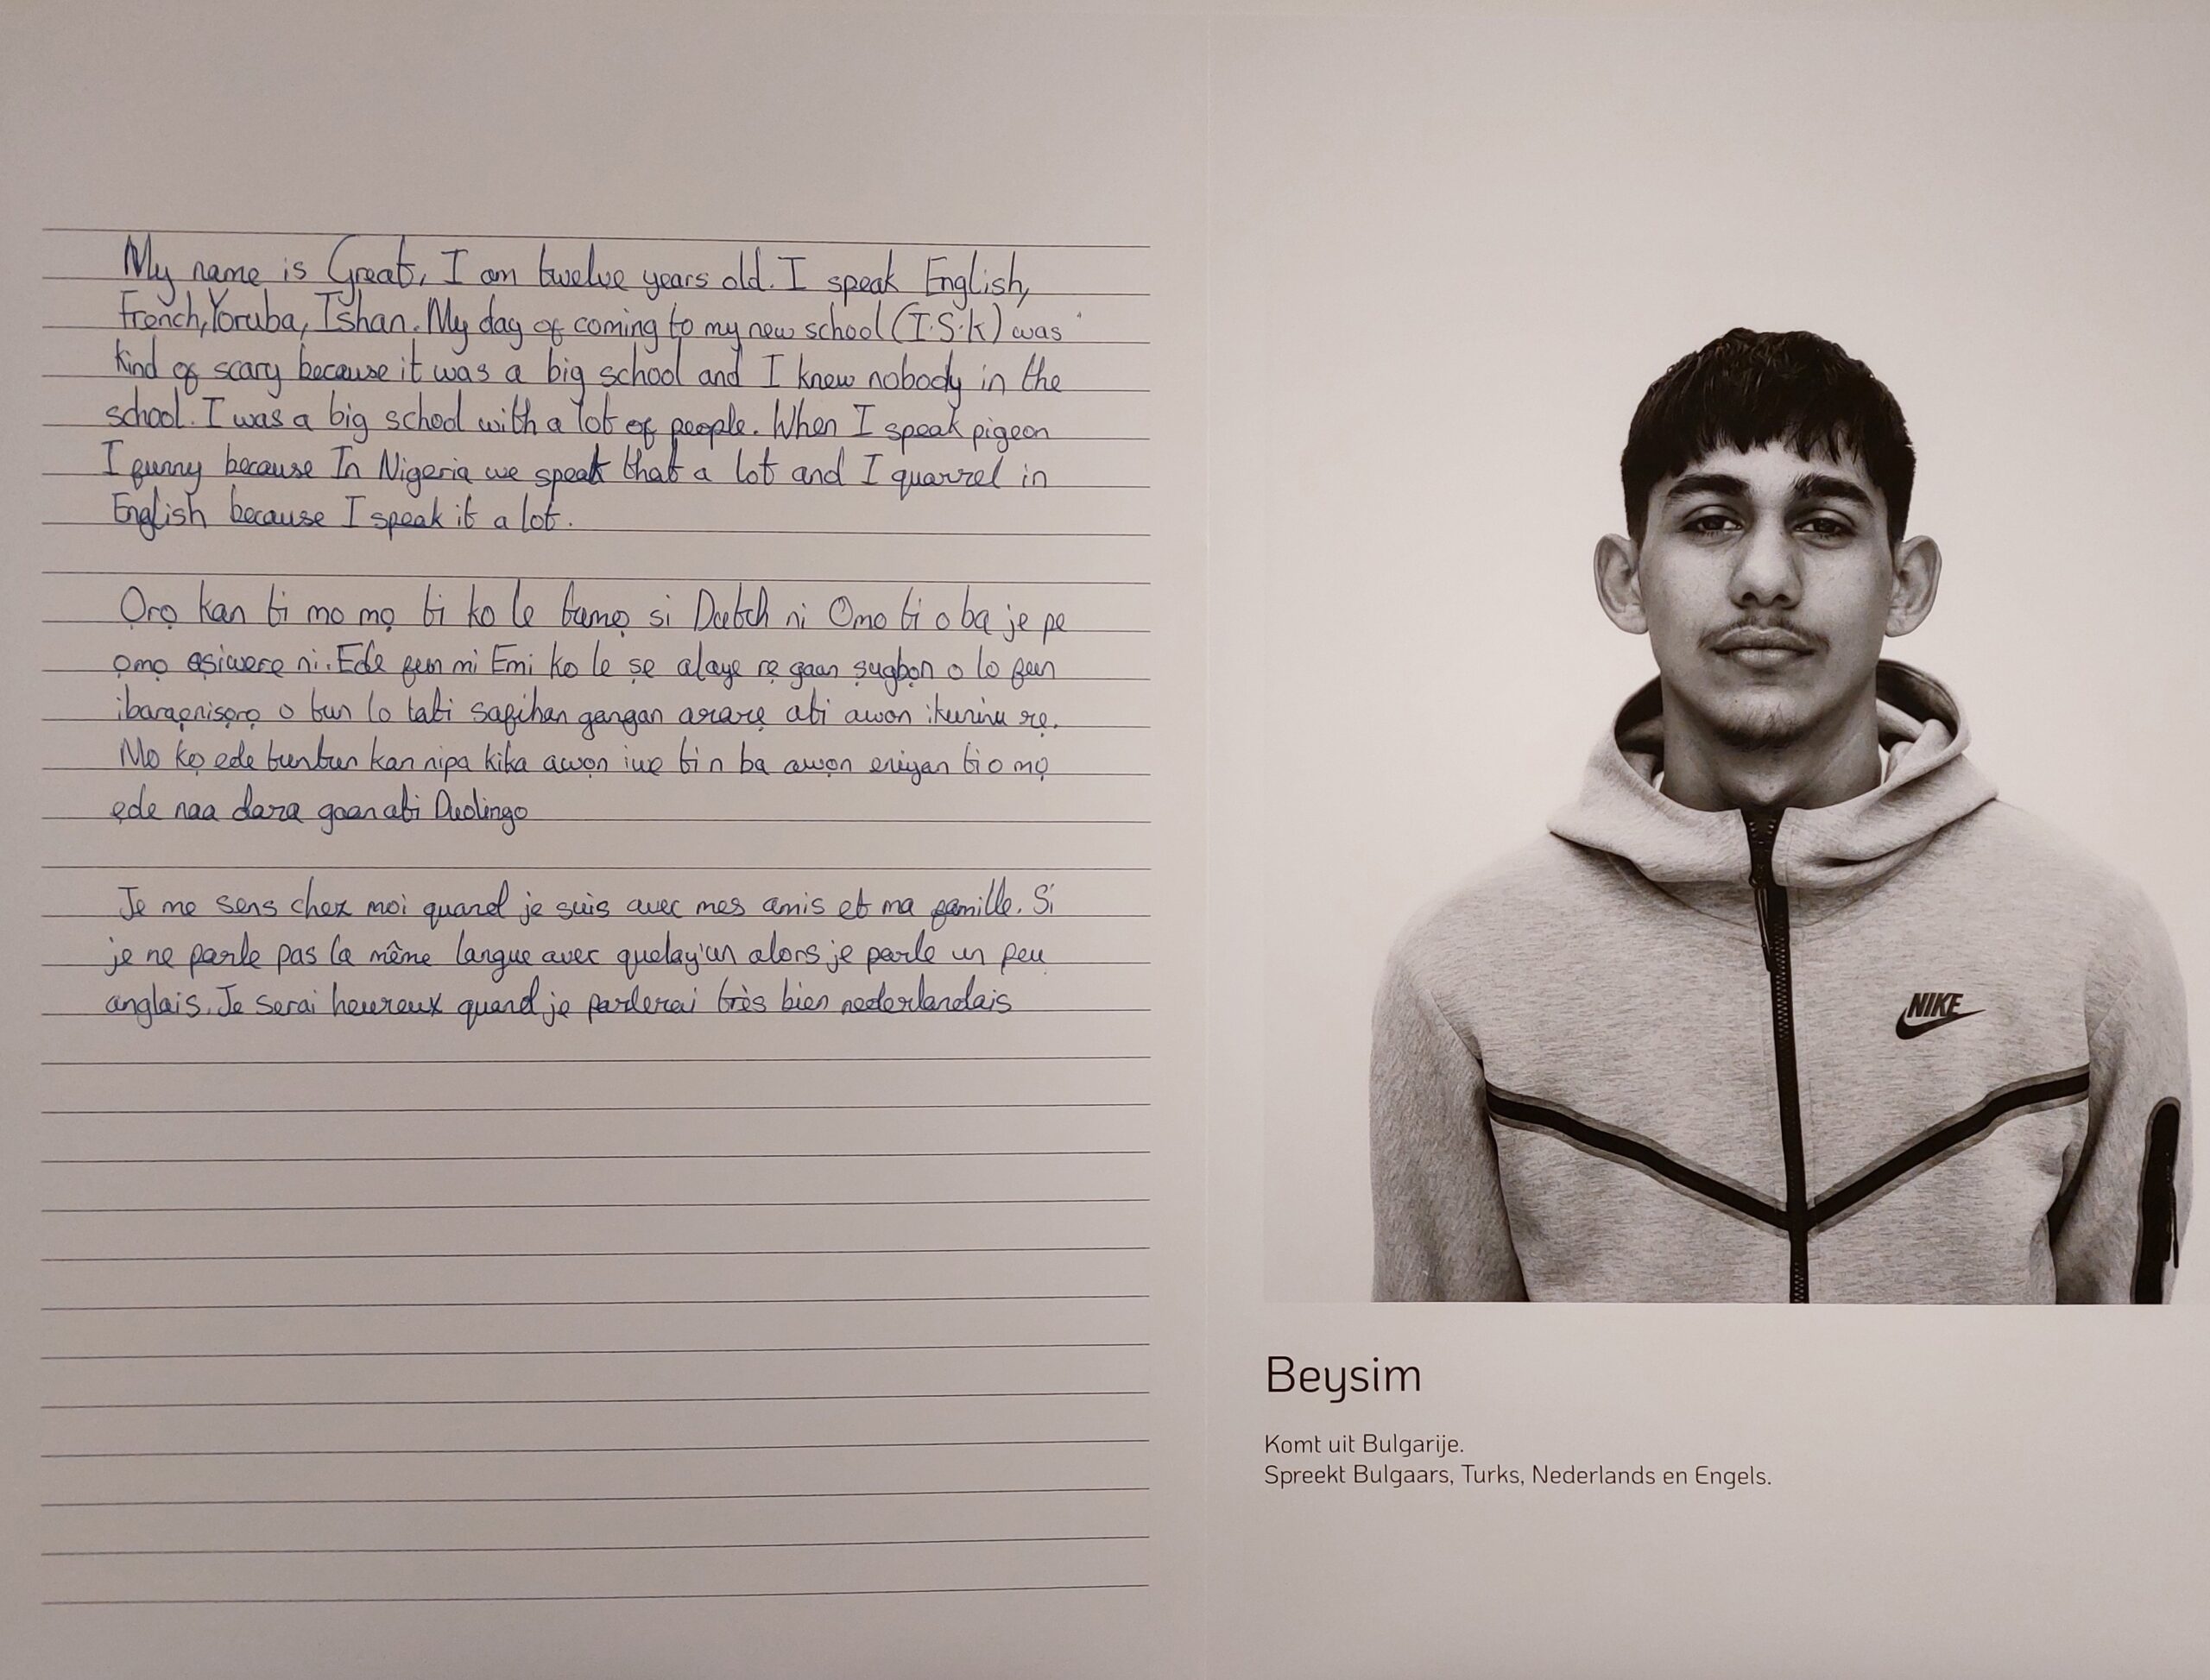 My name is Great, I am twelve years old. I speak English,
French, Yoruba, Ishan. My day of coming to my new school (I.S.K) was
kind of scary because it was a big school and I knew nobody in the
school. I was a big school with a lot of people. When I speak pigeon
I funny because In Nigeria we speak that a lot and I quarrel in
English because I speak it a lot.
Ọrọ kan ti mo mọ ti ko le tumọ si Dutch ni Omo ti o ba je pe
ọmọ asiwere ni. Ede fun mi Emi ko le ṣe alaye rẹ gaan ṣugbọn o lo fun
ibaraẹnisọrọ o tun lo lati safihan gangan ararẹ abi awon ikuninu rẹ.
Mo kọ ede tuntun kan nipa kika awọn iwe ti n ba awọn eniyan ti o mọ
ẹde naa dara gaan abi Duolingo
Je me sens chez moi quand je suis avec mes amis et ma famille. Si
je ne parle pas la même langue avec quelqu'un alors je parle un peu
anglais. Je serai heureux quand je parlerai très bien nederlandais
NIKE
Beysim
Komt uit Bulgarije.
Spreekt Bulgaars, Turks, Nederlands en Engels.